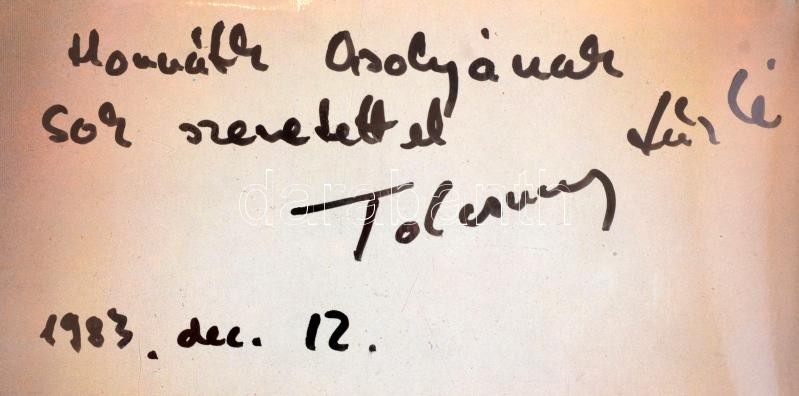 Horváth Orsolyának
Sok szeretettel
Tolcsvay
1983. dec. 12.
darabanth